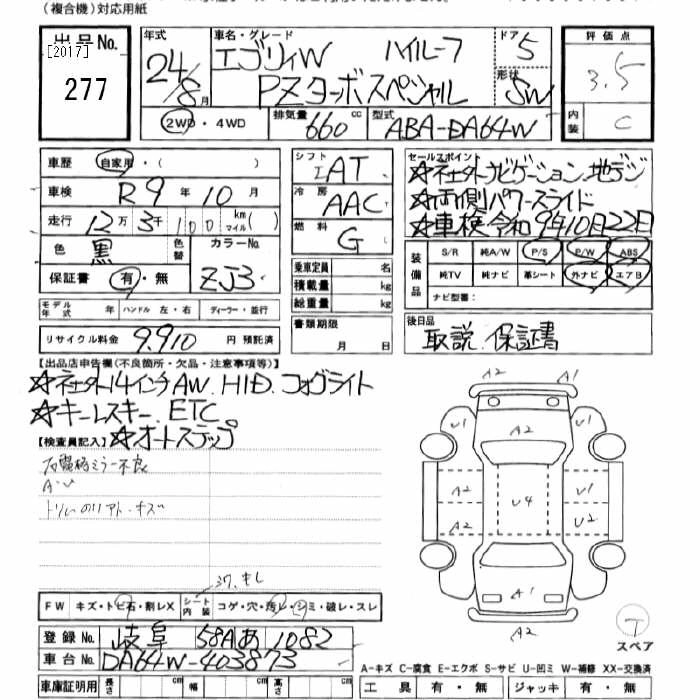 (複合機)対応用紙
出品No. [2017] 277
年式 24/8月
車名・グレード エブリイW ハイルーフ PZターボスペシャル
ドア 5
形状 SW
評価点 3.5
内装 C
2WD・4WD
排気量 660 cc
型式 ABA-DA64W
車歴 自家用・( )
車検 R9年10月
走行 12万3千100km マイル( )
色 黒 色替 カラーNo. ZJ3
保証書 有・無
モデル年式 年 ハンドル 左・右 ディーラー・並行
リサイクル料金 9.910 円 預託済
シフト IAT
冷房 AAC
燃料 G
乗車定員 名
積載量 kg
総重量 kg
書類期限 月 日
セールスポイント
☆社外ナビゲーション 地デジ
☆両側パワースライド
☆車検 令和9年10月22日
装備品 S/R 純A/W P/S P/W ABS
純TV 純ナビ 革シート 外ナビ エアB
ナビ型番:
後日品
取説.保証書
【出品店申告欄(不良箇所・欠品・注意事項等)】
☆社外14インチAW.HID.フォグライト
☆キーレスキー ETC
【検査員記入】 ☆オートステップ
左電格ミラー不良
A・U
トリムのリアト・キズ
FW キズ・トビ石・割レX
シート内装 コゲ・穴・汚レ・シミ・破レ・スレ
登録No. 岐阜 58A あ 1082
車台No. DA64W-403873
車庫証明用 長さ cm 幅 cm 高さ cm
A2 A1
U1 A2 U1
A2 U4 U1
A2 U2
A1
A2
T
スペア
A-キズ C-腐食 E-エクボ S-サビ U-凹ミ W-補修 XX-交換済
工具 有・無 ジャッキ 有・無